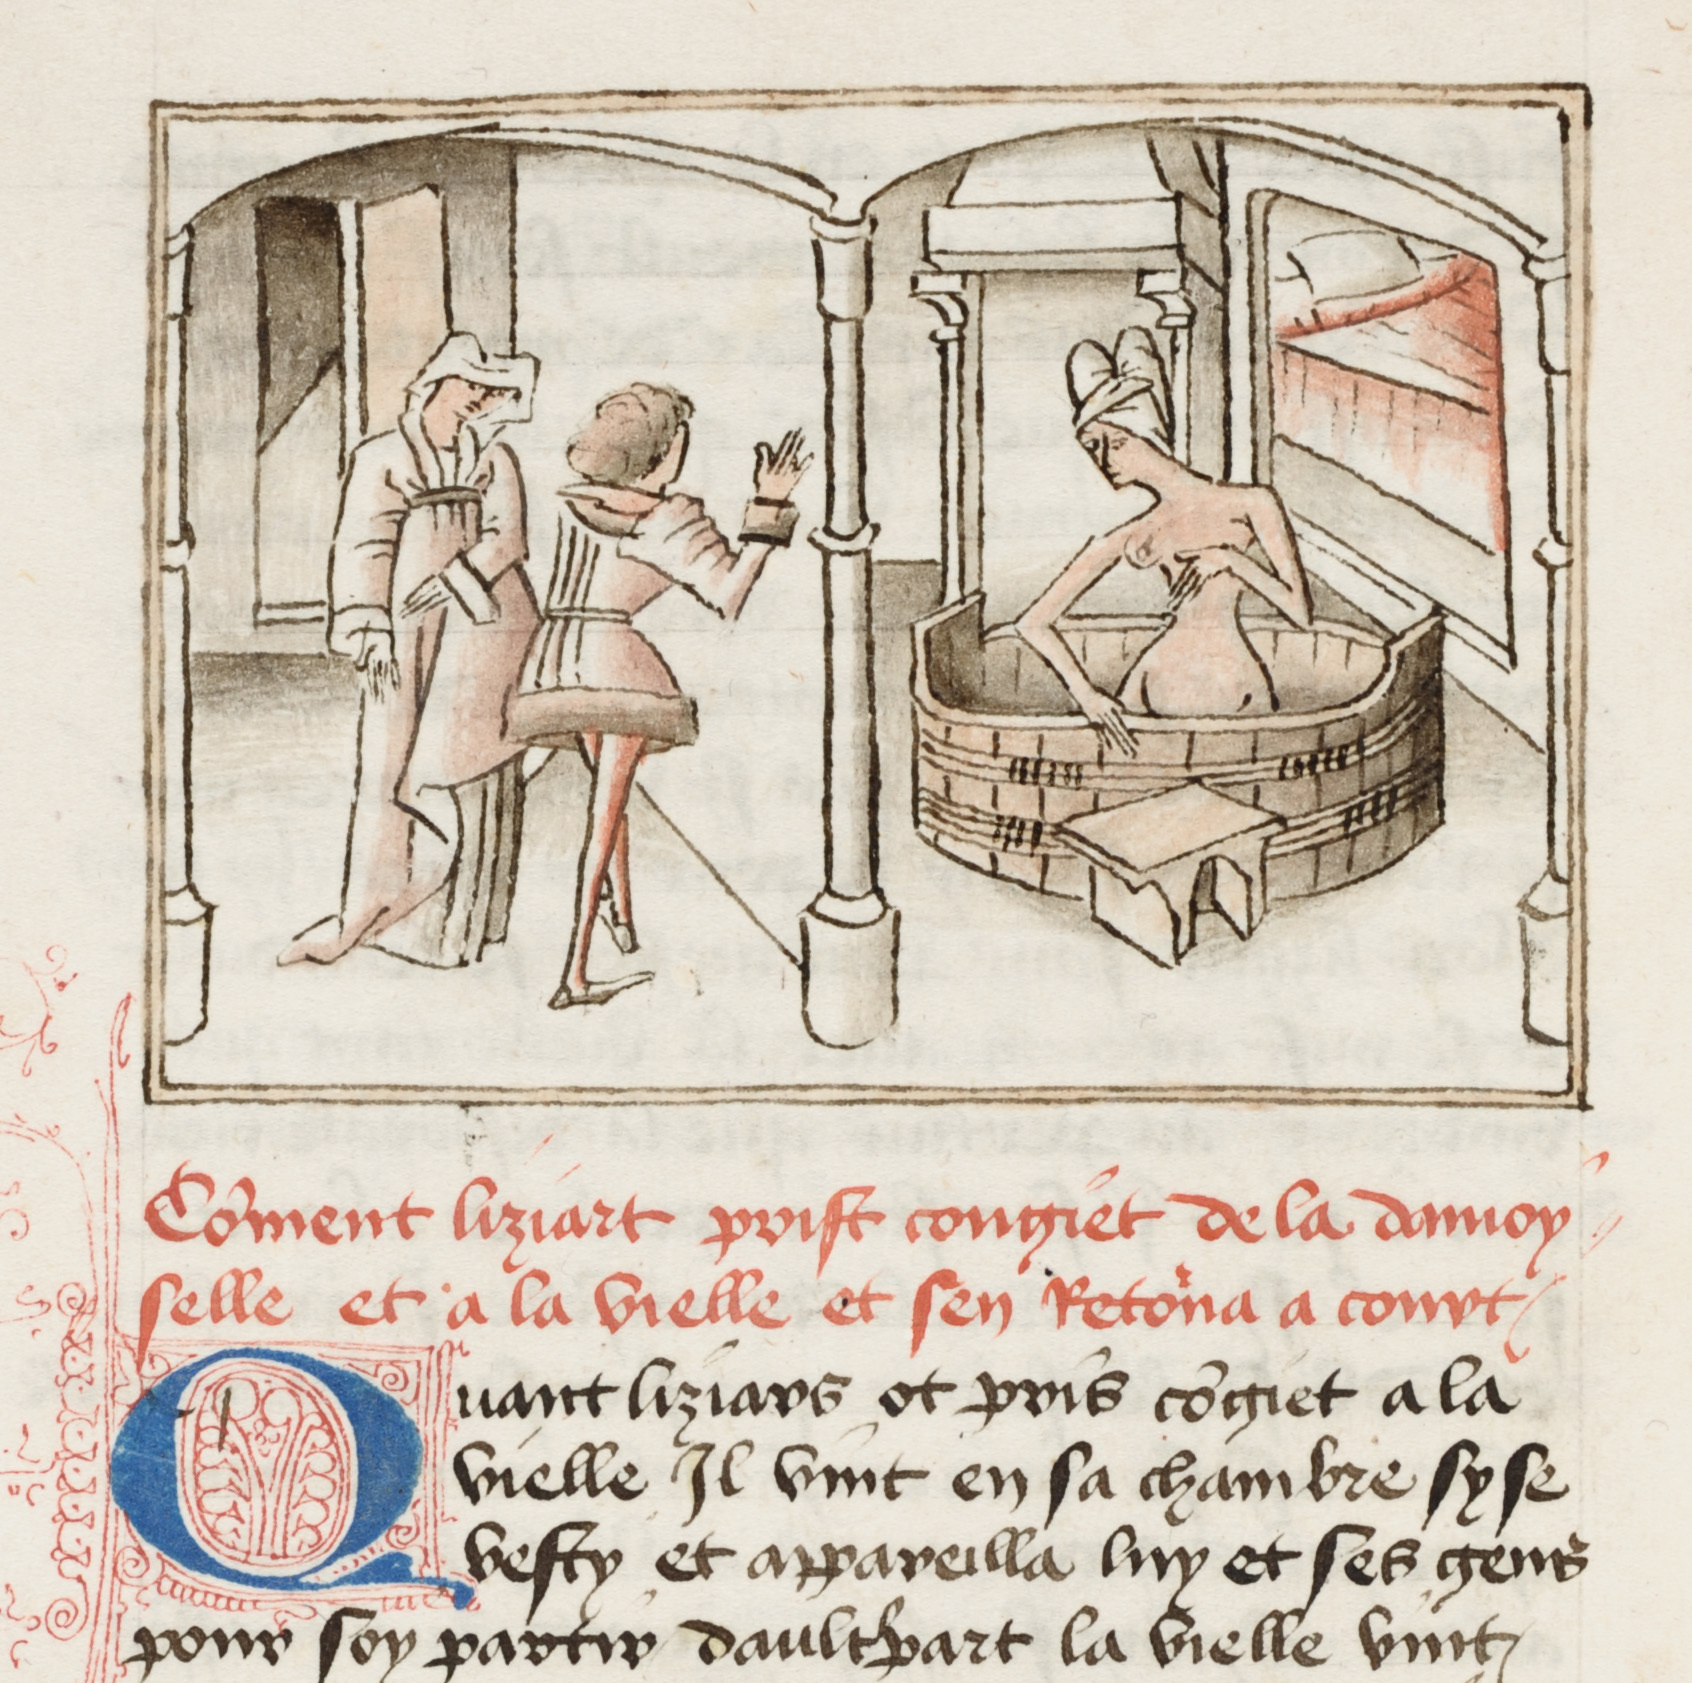 Cōment liziart prist congiet de la damoy
selle et a la vielle et sen Retōrna a court
Quant liziars ot pris cōgiet a la
vielle Il vint en sa chambre sy se
vesty et appareilla luy et ses gens
pour soy partir daultʼpart la vielle vint